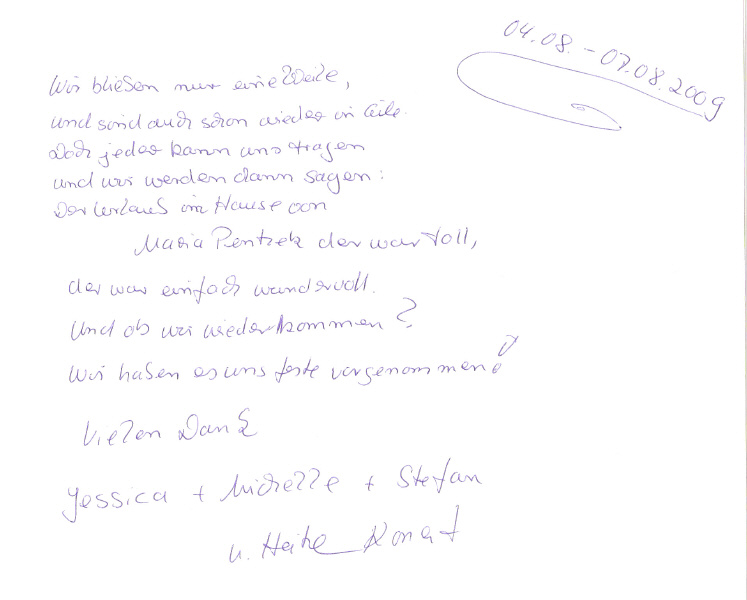 04.08. - 07.08.2009
Wir blieben nur eine Weile,
und sind auch schon wieder in Eile.
Doch jeder kann uns fragen
und wir werden dann sagen:
Der Urlaub im Hause von
Maria Pentzek der war toll,
der war einfach wundervoll.
Und ob wir wiederkommen?
Wir haben es uns feste vorgenommen!
Vielen Dank
Jessica + Michelle + Stefan
u. Heike